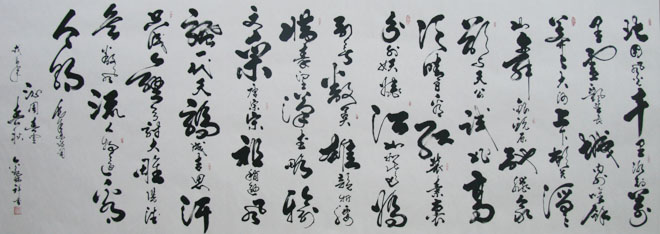 北國風光千里冰封萬
里雪飄望長城內外惟餘
莽莽大河上下頓失滔滔
山舞銀蛇原馳蠟象
欲與天公試比高
須晴日看紅裝素裹
分外妖嬈江山如此多嬌
引無數英雄競折腰
惜秦皇漢武略輸
文采唐宗宋祖稍遜風
騷一代天驕成吉思汗
只識彎弓射大雕俱往
矣數風流人物還看
今朝
沁園春雪